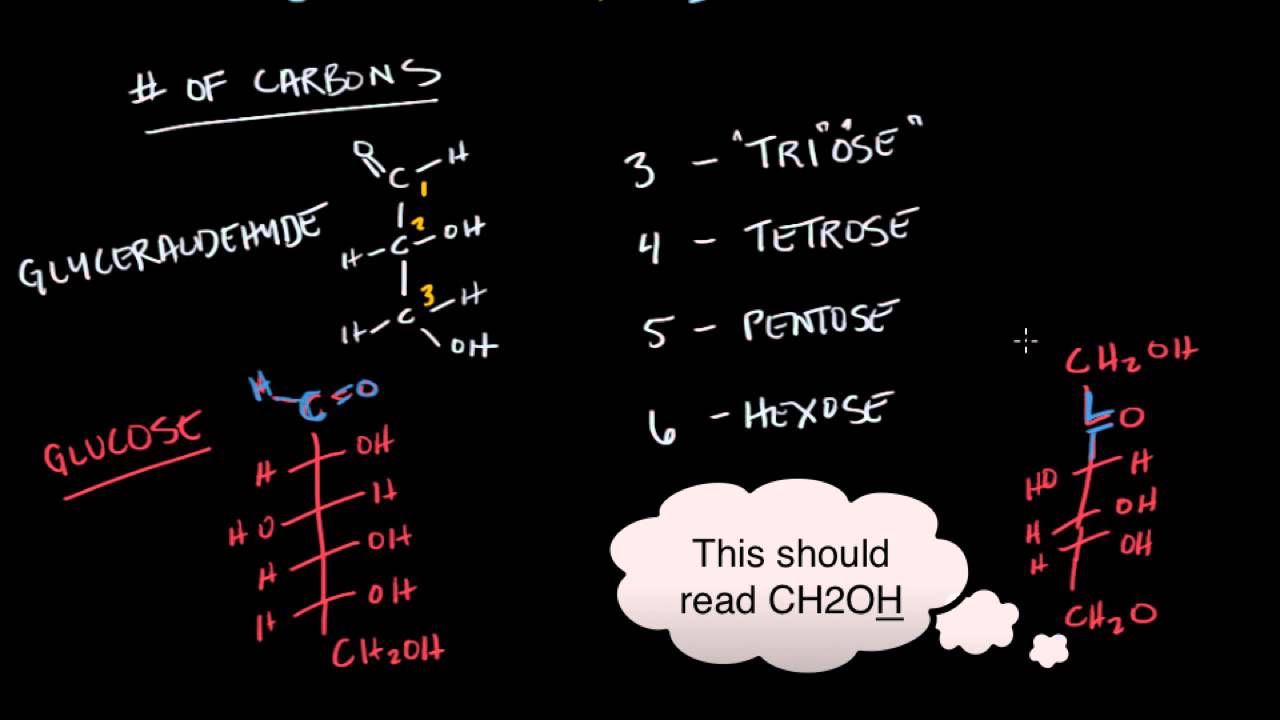 # OF CARBONS
O
C - H
1
2
H - C - OH
3
H - C - H
OH
GLYCERALDEHYDE
3 - "TRI" "OSE"
4 - TETROSE
5 - PENTOSE
6 - HEXOSE
GLUCOSE
H - C = O
H OH
HO H
H OH
H OH
CH2OH
CH2OH
O
HO H
H OH
H OH
CH2O
This should
read CH2OH